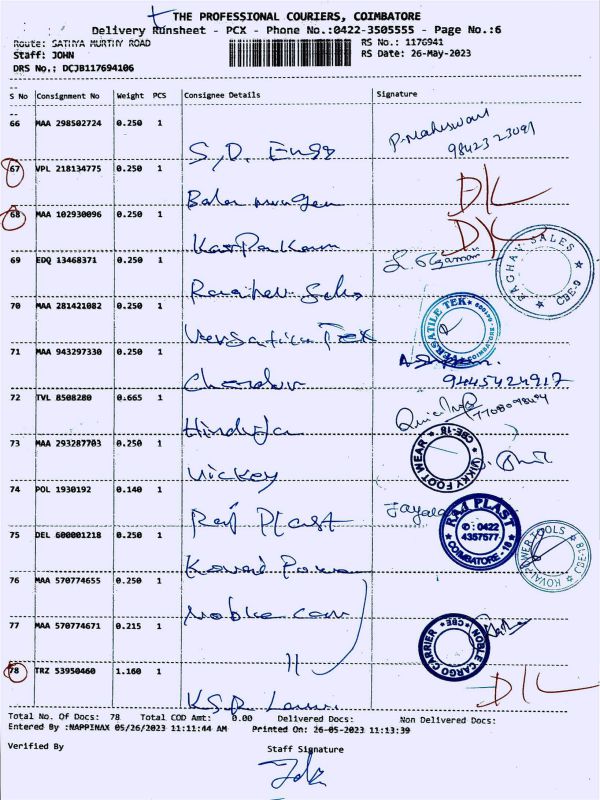 THE PROFESSIONAL COURIERS, COIMBATORE
Delivery Runsheet - PCX - Phone No.:0422-3505555 - Page No.:6
Route: SATHYA MURTHY ROAD RS No.: 1176941
Staff: JOHN RS Date: 26-May-2023
DRS No.: DCJB117694106
S No Consignment No Weight PCS Consignee Details Signature
66 MAA 298502724 0.250 1 P. Maheswari
98423 23091
S.D. Engg
67 VPL 218134775 0.250 1 DL
Bala murugan
68 MAA 102930096 0.250 1 DL
69 EDQ 13468371 0.250 1 RAGHAV SALES CBE-9
Raghav Sales
70 MAA 281421082 0.250 1 VERSATILE TEK
Versatile Tek
71 MAA 943297330 0.250 1
Chandru 9445424917
72 TVL 8508280 0.665 1
Hinduja
73 MAA 293287703 0.250 1 VIKKY FOOT WEAR CBE-18
Vickey
74 POL 1930192 0.140 1
Raj Plast RAJ PLAST
✆: 0422
4357577
COIMBATORE - 18
75 DEL 600001218 0.250 1 KOVAI POWER TOOLS CBE-18
Kovai Power
76 MAA 570774655 0.250 1
Noble Carr
77 MAA 570774671 0.215 1 NOBLE CARGO CARRIER CBE
"
78 TRZ 53950460 1.160 1 DL
K.S.R
Total No. Of Docs: 78 Total COD Amt: 0.00 Delivered Docs: Non Delivered Docs:
Entered By :NAPPINAX 05/26/2023 11:11:44 AM Printed On: 26-05-2023 11:13:39
Verified By Staff Signature